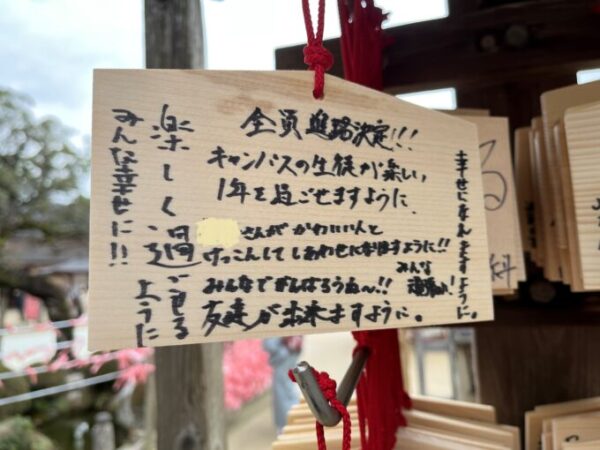 全員進路決定!!!
キャンパスの生徒が楽しい
1年を過ごせますように、
さんが かわいい人と
けっこんして しあわせになれますように!!
みんなでがんばろうね〜!!
みんな
頑張れ!
友達が出来ますように。
幸せになれますように。
楽しく過ごせる
ように
みんな幸せに!!
る